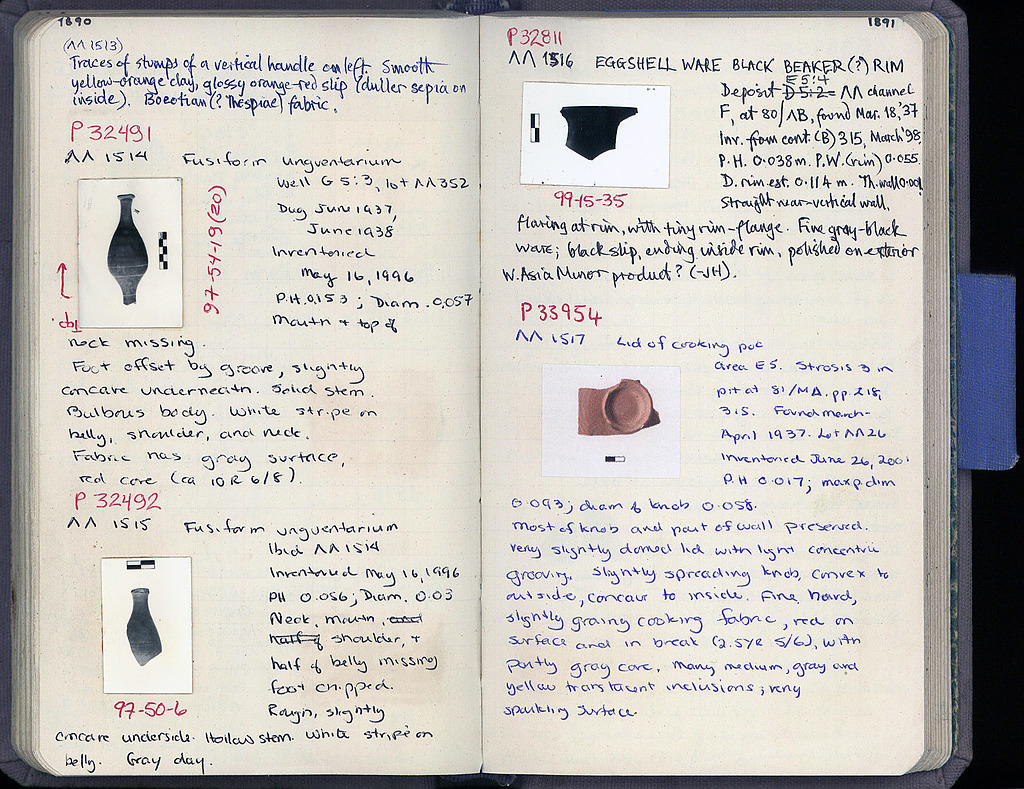 1890
(ΛΛ 1513)
Traces of stumps of a vertical handle on left. Smooth
yellow-orange clay, glossy orange-red slip (duller sepia on
inside). Boeotian (? Thespiae) fabric.
P 32491
ΛΛ 1514 Fusiform unguentarium
Well G 5:3, lot ΛΛ 352
Dug June 1937,
June 1938
Inventoried
May 16, 1996
P.H. 0.153; Diam. 0.057
Mouth + top of
neck missing.
97-54-19 (20)
top
Foot offset by groove, slightly
concave underneath. Solid stem.
Bulbous body. White stripe on
belly, shoulder, and neck.
Fabric has gray surface,
red core (ca 10 R 6/8).
P 32492
ΛΛ 1515 Fusiform unguentarium
Ibid ΛΛ 1514
Inventoried May 16, 1996
PH 0.056; Diam. 0.03
Neck, mouth, and
half of shoulder, +
half of belly missing
foot chipped.
Rough, slightly
97-50-6
concave underside. Hollow stem. White stripe on
belly. Gray clay.
1891
P32811
ΛΛ 1516 EGGSHELL WARE BLACK BEAKER(?) RIM
E 5:4
Deposit D 5:2 = ΛΛ channel
F, at 80/ΛB, found Mar. 18,'37
Inv. from cont. (B) 315, March '98.
P.H. 0.038m. P.W. (rim) 0.055.
D. rim est. 0.114 m. Th. wall 0.001
Straight near-vertical wall,
99-15-35
flaring at rim, with tiny rim-flange. Fine gray-black
ware; black slip, ending inside rim, polished on exterior
W. Asia Minor product? (-JH).
P 33954
ΛΛ 1517 Lid of cooking pot
Area E5. Strosis 3 in
pit at 81/MA, pp. 218,
315. Found March-
April 1937. Lot ΛΛ 26
Inventoried June 26, 2001
P.H 0.017; max p. dim
0.093; diam of knob 0.058.
Most of knob and part of wall preserved.
Very slightly domed lid with light concentric
grooving. Slightly spreading knob, convex to
outside, concave to inside. Fine, hard,
slightly grainy cooking fabric, red on
surface and in break (2.5YR 5/6), with
partly gray core, many medium, gray and
yellow translucent inclusions; very
sparkling surface.